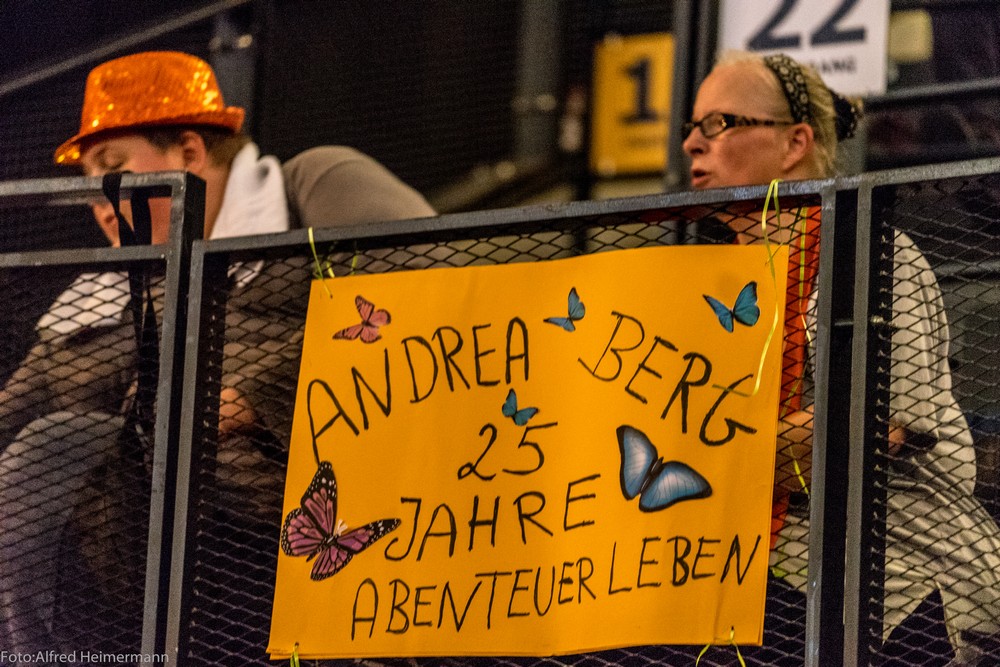 22
1
ANDREA BERG
25
JAHRE
ABENTEUER LEBEN
Foto:Alfred Heimermann